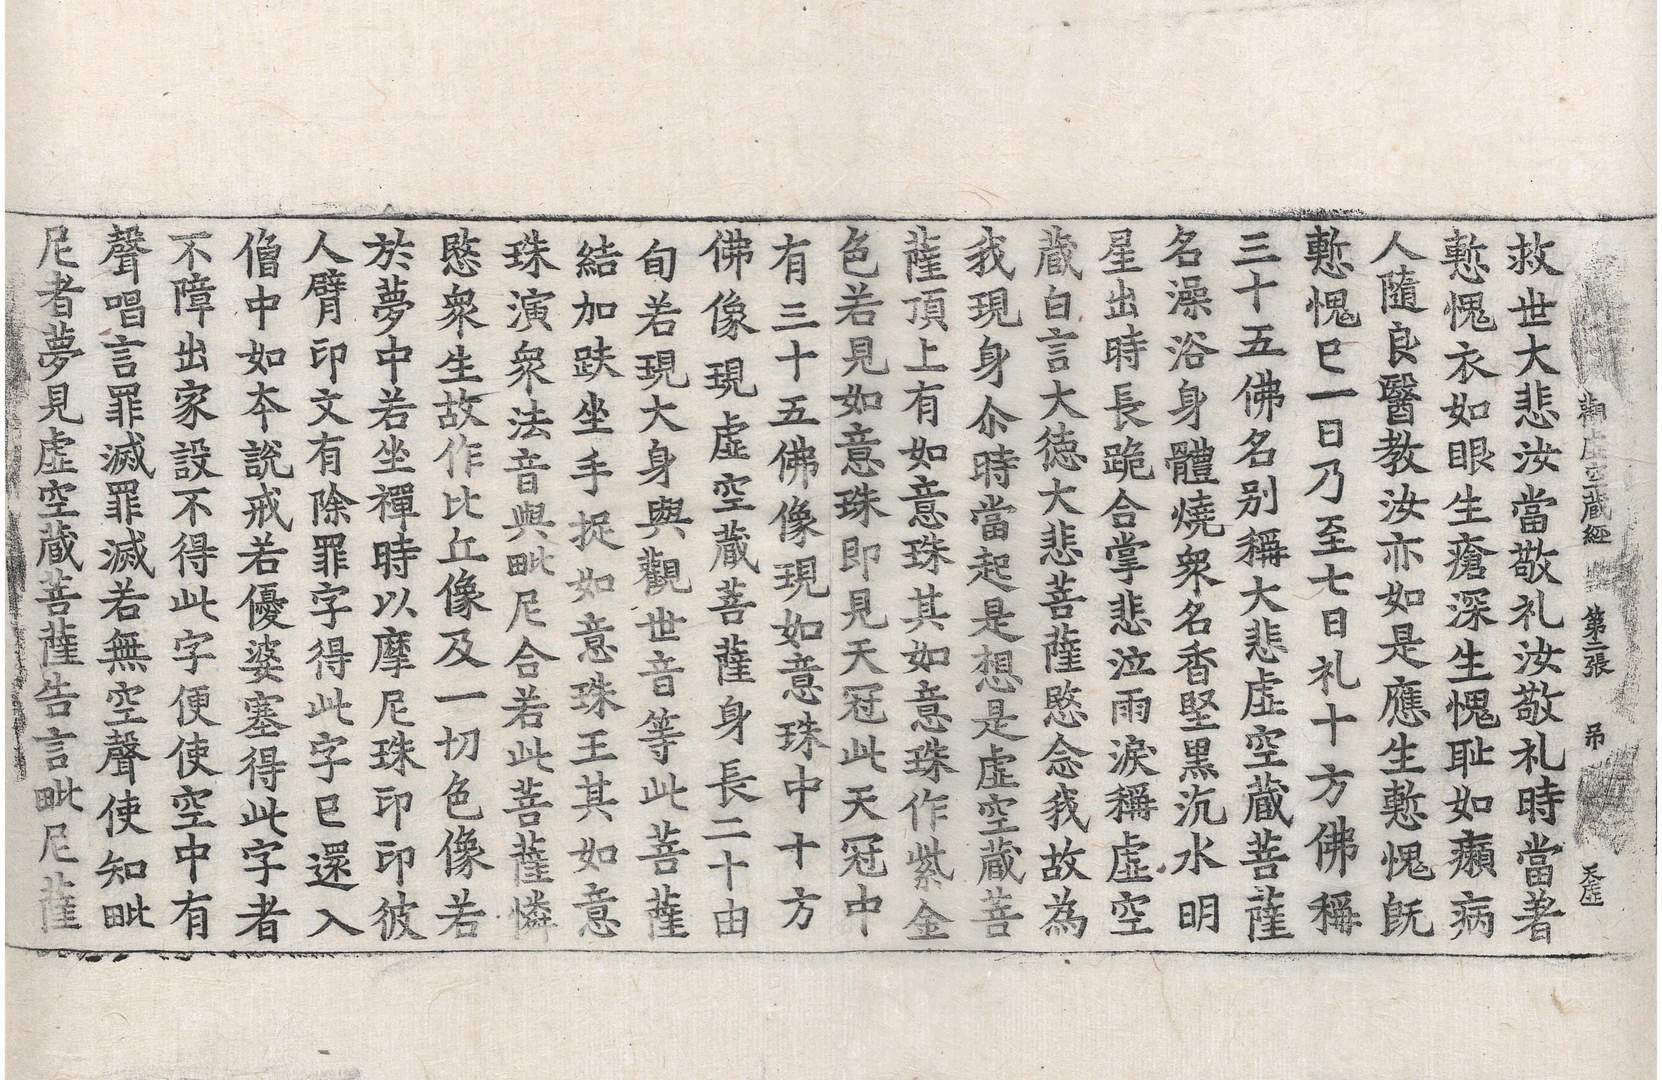 觀虛空藏經 第二張 吊 天虛
救世大悲汝當敬礼汝敬礼時當著
慙愧衣如眼生瘡深生愧耻如癩病
人隨良醫教汝亦如是應生慙愧旣
慙愧已一日乃至七日礼十方佛稱
三十五佛名别稱大悲虛空藏菩薩
名澡浴身體燒衆名香堅黑沉水明
星出時長跪合掌悲泣雨淚稱虛空
藏白言大德大悲菩薩愍念我故為
我現身尒時當起是想是虛空藏菩
薩頂上有如意珠其如意珠作紫金
色若見如意珠即見天冠此天冠中
有三十五佛像現如意珠中十方
佛像現虛空藏菩薩身長二十由
旬若現大身與觀世音等此菩薩
結加趺坐手捉如意珠王其如意
珠演衆法音與毗尼合若此菩薩憐
愍衆生故作比丘像及一切色像若
於夢中若坐禪時以摩尼珠印印彼
人臂印文有除罪字得此字已還入
僧中如本說戒若優婆塞得此字者
不障出家設不得此字便使空中有
聲唱言罪滅罪滅若無空聲使知毗
尼者夢見虛空藏菩薩告言毗尼薩